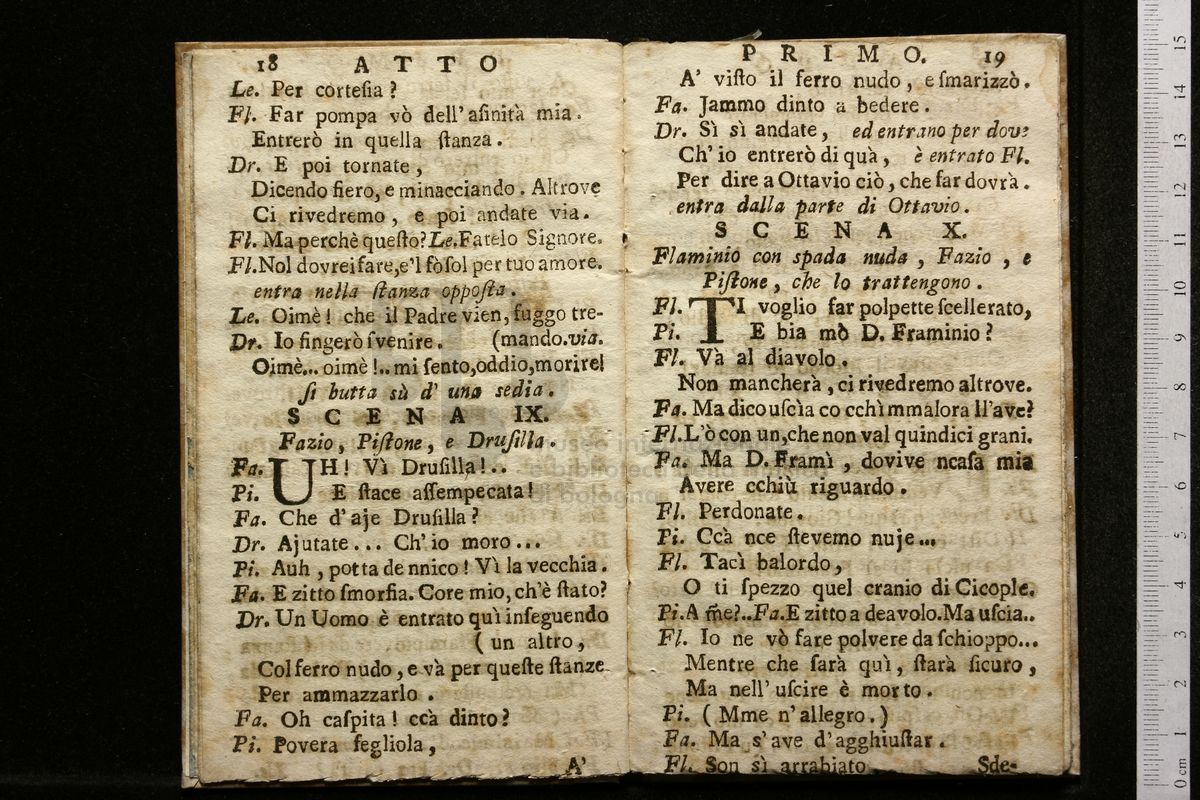 18 ATTO
Le. Per cortesia?
Fl. Far pompa vò dell'asinità mia.
Entrerò in quella stanza.
Dr. E poi tornate,
Dicendo fiero, e minacciando. Altrove
Ci rivedremo, e poi andate via.
Fl. Ma perchè questo? Le. Fatelo Signore.
Fl. Nol dovrei fare, e'l fò sol per tuo amore.
entra nella stanza opposta.
Le. Oimè! che il Padre vien, fuggo tre-
Dr. Io fingerò svenire. (mando. via.
Oimè... oimè!.. mi sento, oddio, morire!
si butta sù d' una sedia.
SCENA IX.
Fazio, Pistone, e Drusilla.
Fa. UH! Vì Drusilla!..
Pi. E stace assempecata!
Fa. Che d'aje Drusilla?
Dr. Ajutate... Ch'io moro...
Pi. Auh, potta de nnico! Vì la vecchia.
Fa. E zitto smorfia. Core mio, ch'è stato?
Dr. Un Uomo è entrato quì inseguendo
( un altro,
Col ferro nudo, e và per queste stanze
Per ammazzarlo.
Fa. Oh caspita! ccà dinto?
Pi. Povera fegliola,
A'
PRIMO. 19
A' visto il ferro nudo, e smarizzò.
Fa. Jammo dinto a bedere.
Dr. Sì sì andate, ed entrano per dove
Ch'io entrerò di quà, è entrato Fl.
Per dire a Ottavio ciò, che far dovrà.
entra dalla parte di Ottavio.
SCENA X.
Flaminio con spada nuda, Fazio, e
Pistone, che lo trattengono.
Fl. TI voglio far polpette scellerato,
Pi. E bia mò D. Framinio?
Fl. Và al diavolo.
Non mancherà, ci rivedremo altrove.
Fa. Ma dico uscìa co cchì mmalora ll'ave?
Fl. L'ò con un, che non val quindici grani.
Fa. Ma D. Framì, dovive ncasa mia
Avere cchiù riguardo.
Fl. Perdonate.
Pi. Ccà nce stevemo nuje...
Fl. Tacì balordo,
O ti spezzo quel cranio di Cicople.
Pi. A m̃e?.. Fa. E zitto a deavolo. Ma uscia..
Fl. Io ne vò fare polvere da schioppo...
Mentre che sarà quì, starà sicuro,
Ma nell'uscire è morto.
Pi. ( Mme n'allegro. )
Fa. Ma s'ave d'agghiustar.
Fl. Son sì arrabiato
Sde-